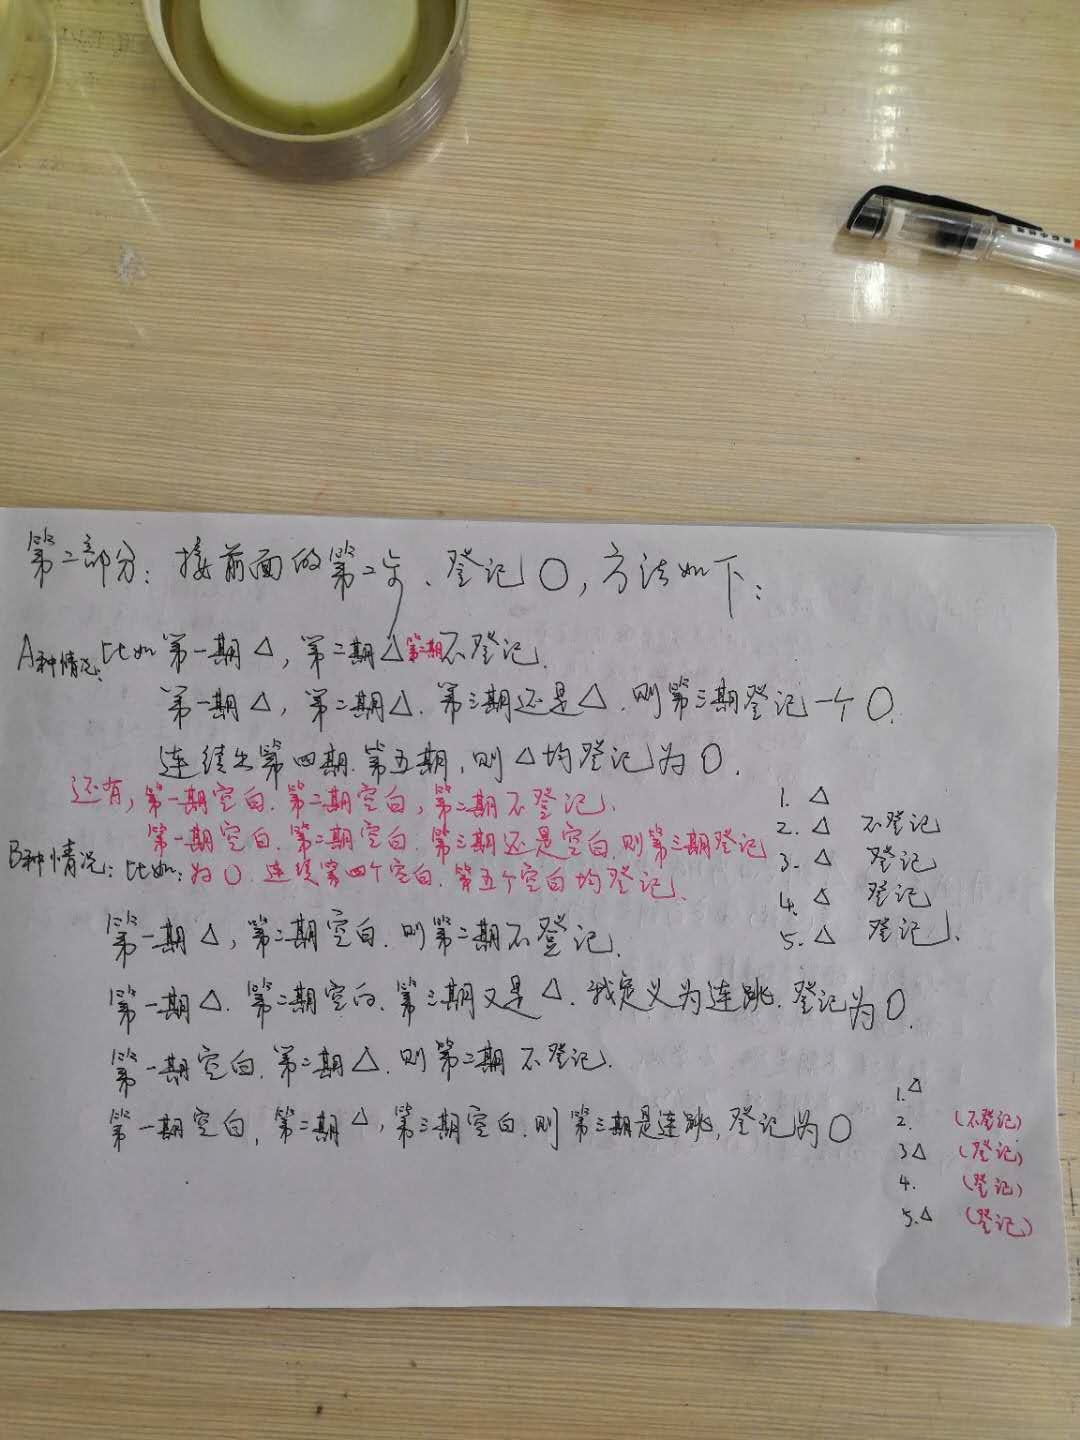 第二部分：接前面的第二步、登记〇，方法如下：
A种情况：比如第一期△，第二期△第二期不登记.
第一期△，第二期△.第三期还是△.则第三期登记一个〇.
连续出第四期.第五期，则△均登记为〇.
还有，第一期空白.第二期空白，第二期不登记.
第一期空白.第二期空白.第三期还是空白.则第三期登记
B种情况：比如：为〇.连续第四个空白.第五个空白均登记.
1. △
2. △ 不登记
3. △ 登记
4. △ 登记
5. △ 登记.
第一期△，第二期空白.则第二期不登记.
第一期△.第二期空白.第三期又是△.我定义为连跳.登记为〇.
第一期空白.第二期△.则第二期不登记.
第一期空白，第二期△，第三期空白.则第三期是连跳，登记为〇
1.△
2. （不登记）
3△ （登记）
4. （登记）
5.△ （登记）